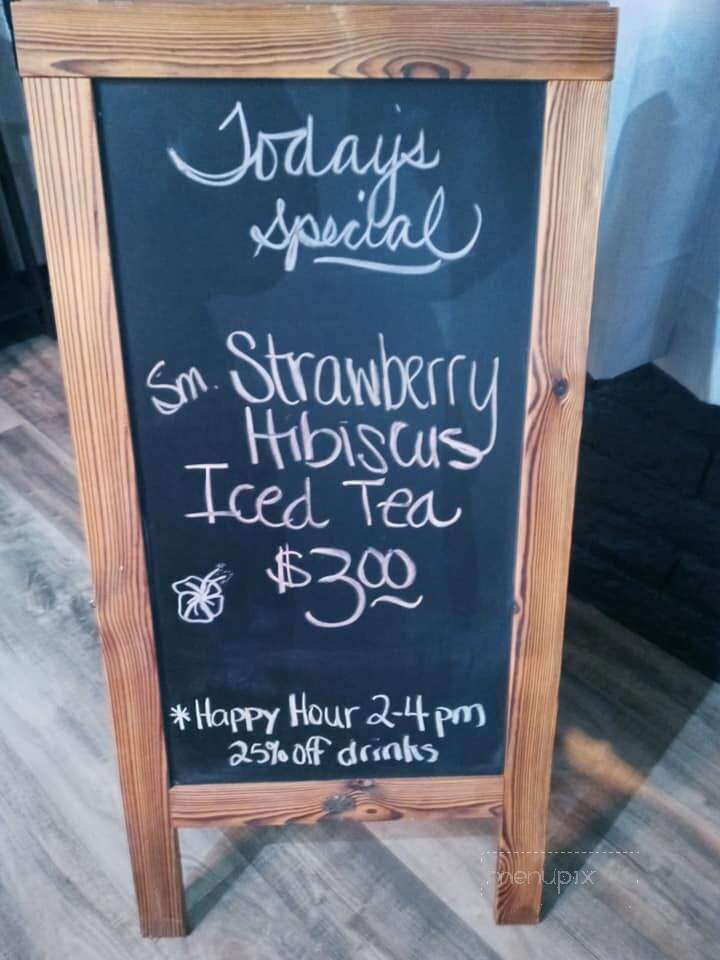 Today's
Special
Sm. Strawberry
Hibiscus
Iced Tea
$3.00
*Happy Hour 2-4 pm
25% off drinks
menupix